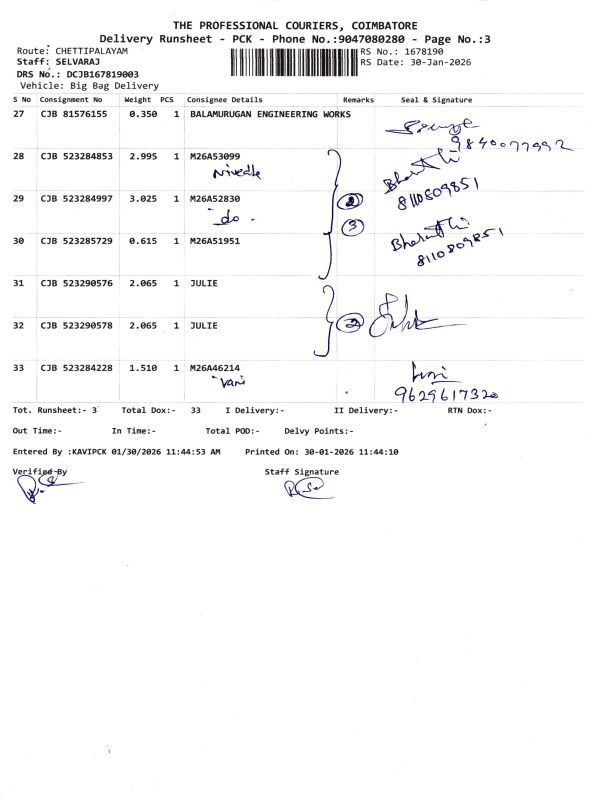 THE PROFESSIONAL COURIERS, COIMBATORE
Delivery Runsheet - PCK - Phone No.:9047080280 - Page No.:3
Route: CHETTIPALAYAM RS No.: 1678190
Staff: SELVARAJ RS Date: 30-Jan-2026
DRS No.: DCJB167819003
Vehicle: Big Bag Delivery
S No Consignment No Weight PCS Consignee Details Remarks Seal & Signature
27 CJB 81576155 0.350 1 BALAMURUGAN ENGINEERING WORKS
9840077992
28 CJB 523284853 2.995 1 M26A53099
Bharathi
8110809851
29 CJB 523284997 3.025 1 M26A52830 2
do. 3
30 CJB 523285729 0.615 1 M26A51951
Bharathi
8110809851
31 CJB 523290576 2.065 1 JULIE
32 CJB 523290578 2.065 1 JULIE 2
33 CJB 523284228 1.510 1 M26A46214
Vani
9629617320
Tot. Runsheet:- 3 Total Dox:- 33 I Delivery:- II Delivery:- RTN Dox:-
Out Time:- In Time:- Total POD:- Delvy Points:-
Entered By :KAVIPCK 01/30/2026 11:44:53 AM Printed On: 30-01-2026 11:44:10
Verified By Staff Signature